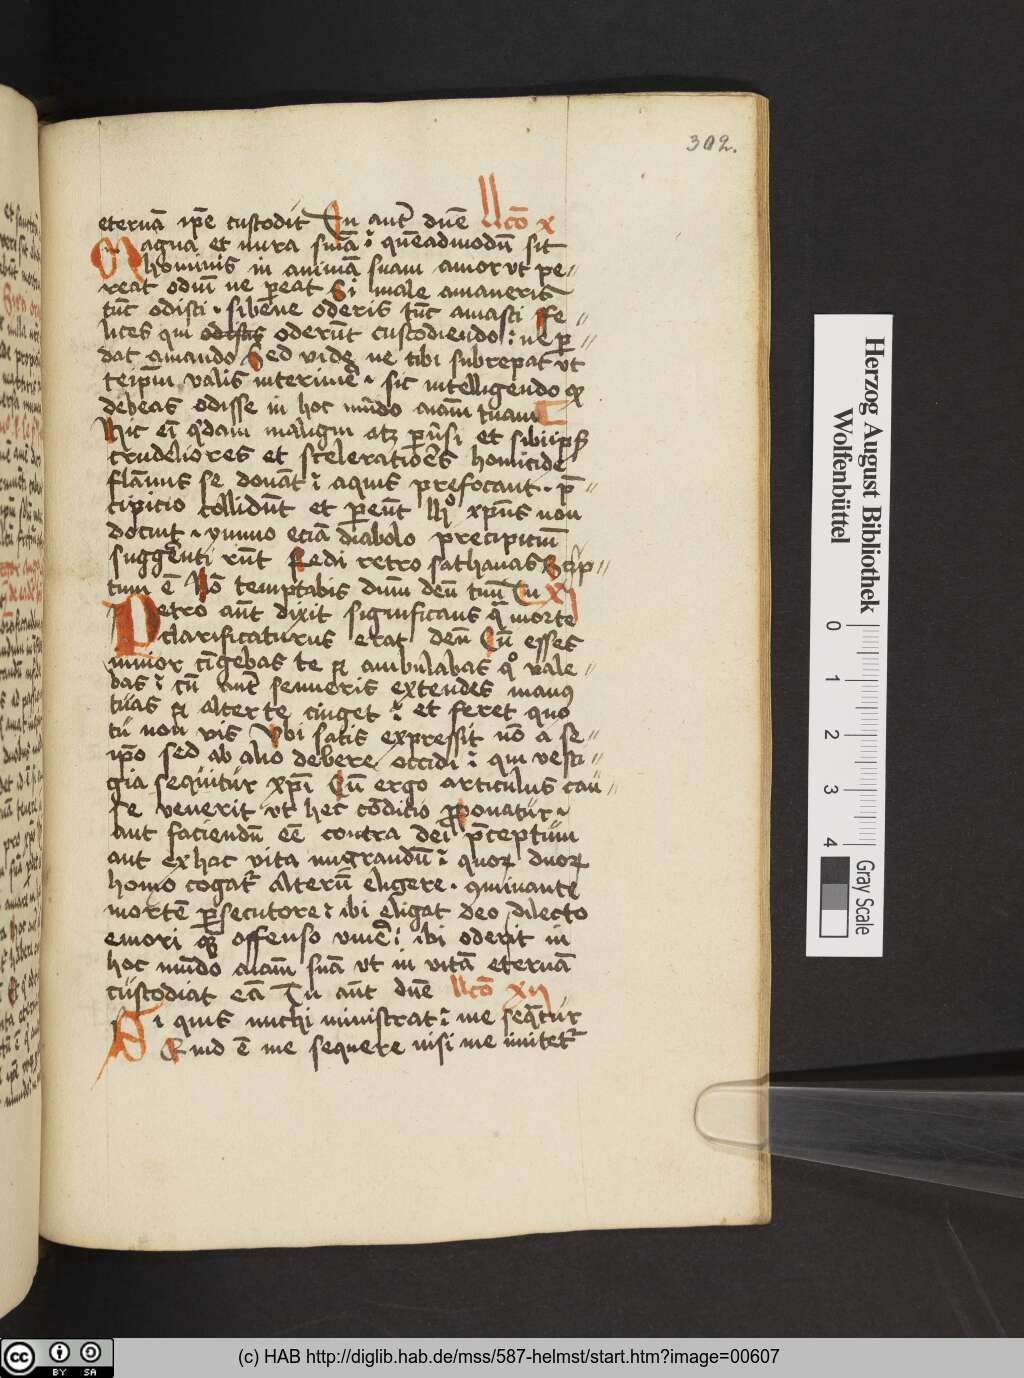 302.
eternā ip̄e custodit Tu aut̄ dn̄e Lc̄o x
Magna et mira sn̄ia ⁊ quēadmodū sit
hominis in animā suam amor vt pe//
reat odiū ne pereat Si male amaueris
tūc odisti · si bene oderis tūc amasti Fe//
lices qui odistis oderūt custodiendo ⁊ ne per//
dat amando Sed vide ne tibi subrepat vt
teip̄m velis interimē · sic intelligendo qꝫ
debeas odisse in hoc mūdo aīam tuam
Hic eī q̄dam maligni atqꝫ p̄uersi et sibiip̄s
crudeliores et sceleratiores homicide
flāmis se donāt ⁊ aquis prefocant · p̄//
cipicio collidūt et pereūt Hº xp̄us non
docuit · ymmo eciā diabolo precipiciū
suggerēti rn̄t Redi retro sathanas Scrip//
tum ē Nō temptabis dn̄m deū tuū Tu XI
Petro aūt dixit significans q̄ morte
clarificaturus erat deū Cū esses
iunior cīgebas te ⁊ ambulabas qº vale//
bas ⁊ cū aut̄ senueris extendes manꝰ
tuas ⁊ alter te cinget ⁊ et feret quo
tu non vis Vbi satis expressit nō a se//
ip̄o sed ab alio debere occidi ⁊ qui vesti//
gia sequitur xp̄i Cū ergo articulus cau//
se venerit vt hec cōdicio proponatur ·
aut faciendū eē contra dei p̄ceptum
aut ex hac vita migrandū ⁊ quorꝫ duorꝫ
homo cogat̄ alterū eligere · ꝯminante
mortē persecutore ⁊ ibi eligat deo dilecto
emori qꝫ offenso viuē ⁊ ibi oderit in
hoc mūdo aīam suā vt in vitā eternā
custodiat eā Tu aūt dn̄e Lc̄o xii
Si quis michi ministrat ⁊ me seq̄tur
Quid ē me sequere nisi me imitet̄
Herzog August Bibliothek
Wolfenbüttel
0 1 2 3 4
Gray Scale
(c) HAB http://diglib.hab.de/mss/587-helmst/start.htm?image=00607
cc BY SA